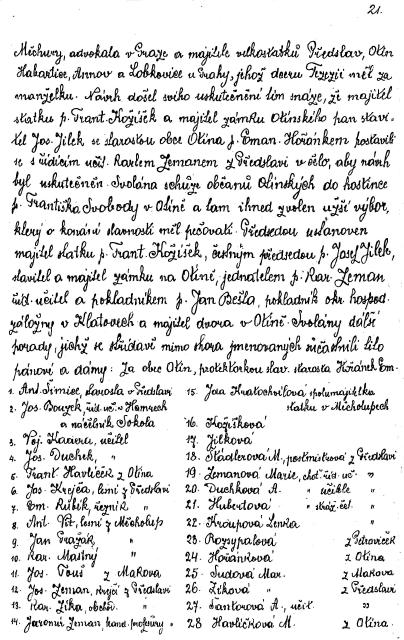 21.
Měchury, advokáta v Praze a majitele velkostatků Předslav, Otín
Habartice, Annov a Lobkovice u Prahy, jehož dceru Terezii měl za
manželku. Návrh došel svého uskutečnění tím snáze, že majitel
statku p. Frant. Kožíšek a majitel zámku Otínského pan stavi-
tel Jos. Jílek se starostou obce Otína p. Eman. Hořánkem postavili
se s řídícím učit. Karlem Zemanem z Předslavi v čelo, aby návrh
byl uskutečněn. Svolána schůze občanů Otínských do hostince
p. Františka Svobody v Otíně a tam ihned zvolen užší výbor,
který o konání slavnosti měl pečovati. Předsedou ustanoven
majitel statku p. Frant. Kožíšek, čestným předsedou p. Josef Jílek,
stavitel a majitel zámku na Otíně, jednatelem p. Kar. Zeman
říd. učitel a pokladníkem p. Jan Bešta, pokladník okr. hospod.
záložny v Klatovech a majitel dvora v Otíně. Svolány další
porady, jichž se střídavě mimo shora jmenovaných zúčastnili tito
pánové a dámy: Za obec Otín, protektorkou slav. starosta Hořánek Em.
1. Ant. Šimice, starosta v Předslavi
2. Jos. Bouzek, říd. uč. v
a náčelník Sokola
3. Voj. učitel
4. Jos. Duchek, "
5. Frant. Havlíček z Otína
6. Jos. Krejča, z Předslavi
7. Em. Rubík, řezník " "
8. Ant. Vít, z Měcholup
9. Jan Pražák "
10. Kar. Mašný "
11. Jos. Touš z Makova
12. Jos. Zeman, krejčí z Předslavi
13. Kar. Zíka, "
14. Jaromír Zeman, "
15. Kratochvílová spolumajitelka
statku v Měcholupech
16. Kožíšková
17. Jílková
18. Stadlerová M., poštmistrová z Předslavi
19. Zemanová Marie, choť říd. uč. "
20. Duchková A. " učitele "
21. Hubertová " "
22. Kroupová Lenka "
23. Rozsypalová z Petroviček
24. Hořánková z Otína
25. Sudová Mar. z Makova
26. Zíková z Předslavi
27. Šantorová A., učit. "
28 Havlíčková M. z Otína.